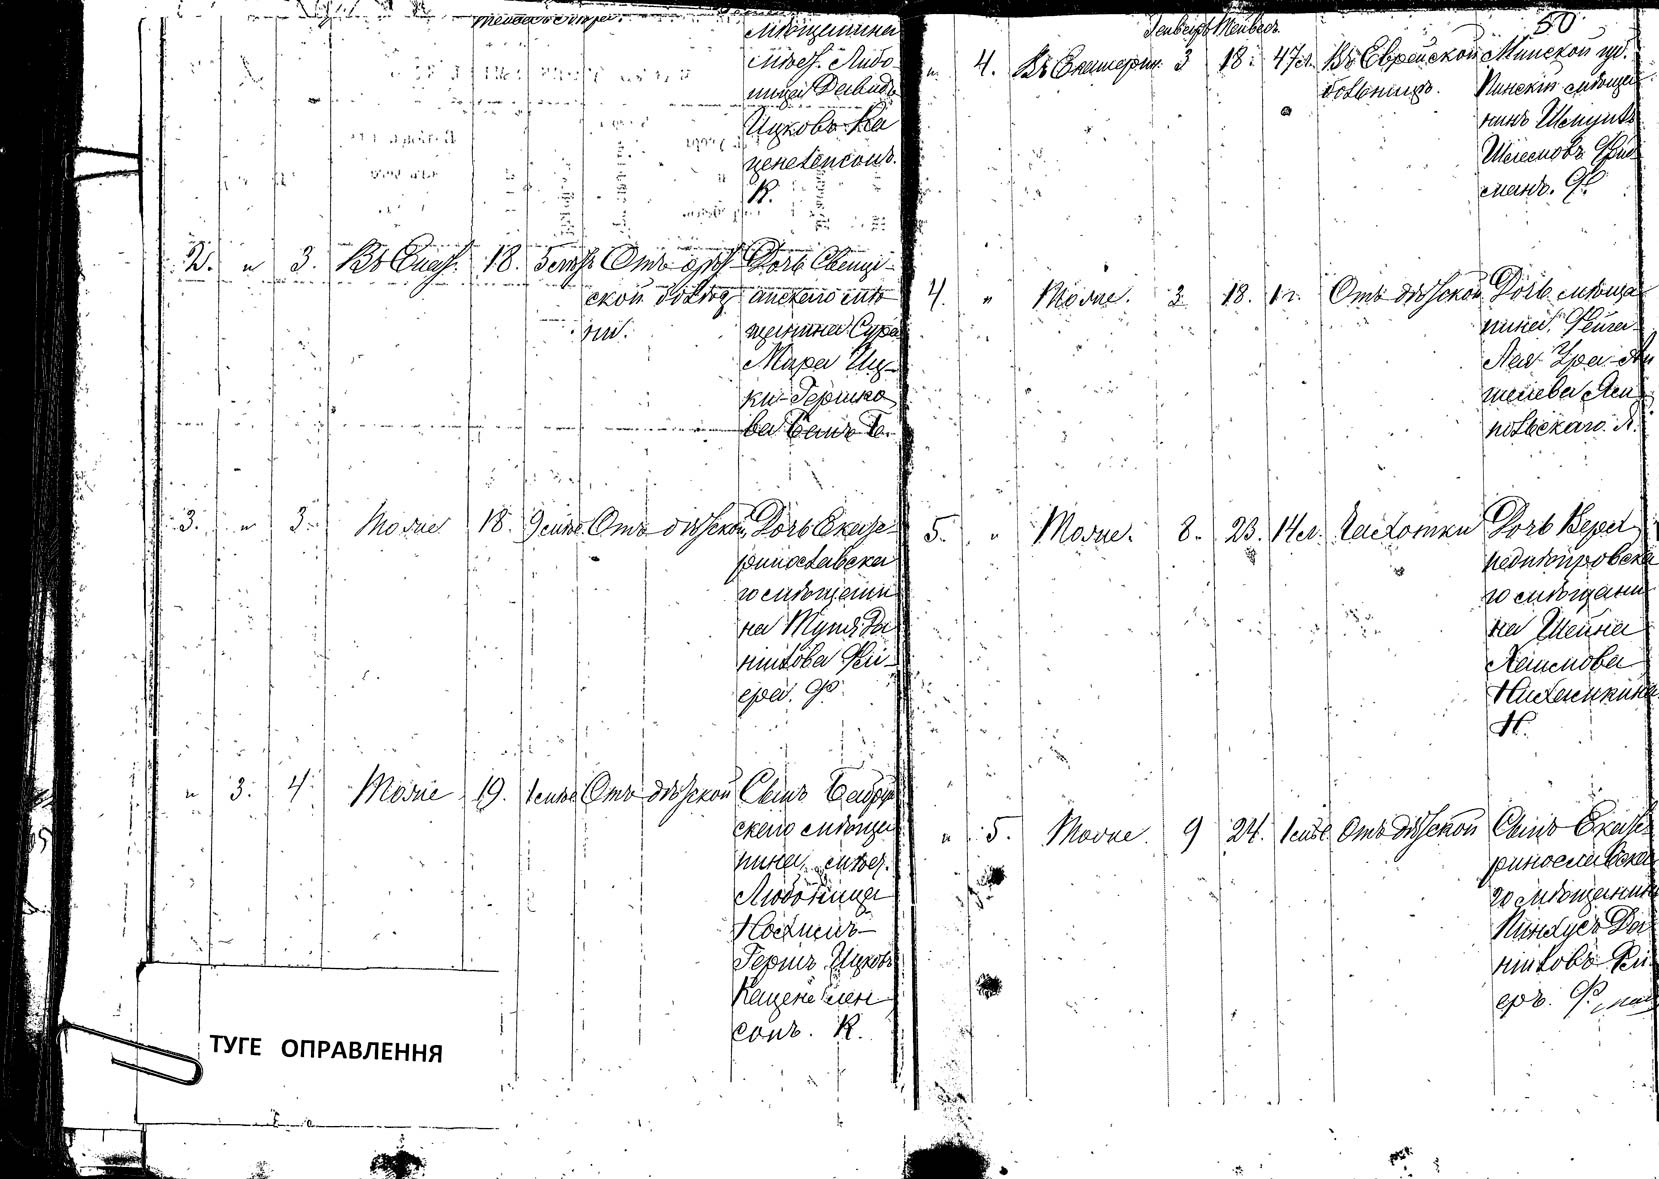 мѣщанина
мѣст. Любо-
ница Давидъ
Ицковъ Ка
ценеленсонъ.
К.
2. " 3. Въ Екат. 18. 5 мѣс. Отъ дѣт- Дочь Свенця-
ской болѣз анскаго мѣ
ни. щанина Сура
Мира Иц-
ки-Гершко
ва Б.
3. " 3. Тоже 18. 9 мѣс. Отъ дѣтской Дочь Екате-
ринославска
го мѣщани
на
нилова Фи-
ера. Ф.
" 3. 4 Тоже 19. 1 мѣс. Отъ дѣтской Сынъ Бобруй
скаго мѣща
нина мѣст.
Любоница
Нохимъ-
Гершъ Ицковъ
Каценелен
сонъ. К.
ТУГЕ ОПРАВЛЕННЯ
50
Генварь Тейвесъ
" 4. Въ Екатерин. 3 18. 47 л. Въ Еврейской Минской губ.
больницѣ. Пинскій мѣща
нинъ Шмуилъ
Шлемовъ Фрид
манъ. Ф.
4. " Тоже. 3 18. 1 г. Отъ дѣтской Дочь мѣща
нина Фейга-
Лея Ура-Ан
шелева Ям
польскаго. Я.
5. " Тоже. 8. 23. 14 л. Чахотки Дочь Верх
неднѣпровска
го мѣщани
на Шейна
Хаимова
Нахамкина
Н.
" 5. Тоже. 9 24. 1 мѣс. Отъ дѣтской Сынъ Екате
ринославска
го мѣщанина
Пинхусъ Да
ниловъ Фи
еръ. Ф.